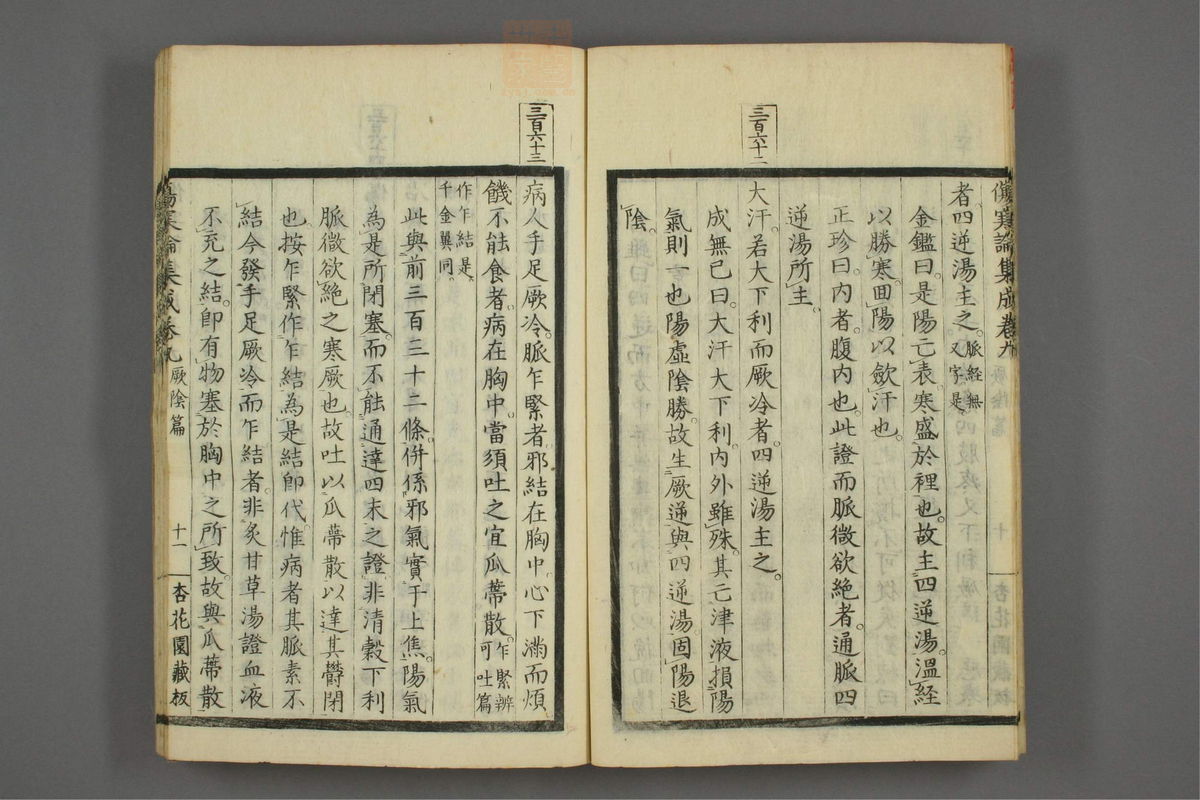 傷寒論集成卷九
三百六十二
者四逆湯主之脈經無又字是
金鑑曰是陽亡表寒盛於裡也故主四逆湯溫經
以勝寒囬陽以歛汗也
正珍曰內者腹內也此證而脈微欲絕者通脈四
逆湯所主
大汗若大下利而厥冷者四逆湯主之
成無己曰大汗大下利內外雖殊其亡津液損陽
氣則一也陽虛陰勝故生厥逆與四逆湯固陽退
陰
三百六十三
病人手足厥冷脈乍緊者邪結在胸中心下滿而煩
饑不能食者病在胸中當須吐之宜瓜蒂散乍緊辨可吐篇
作乍結是千金翼同
此與前三百三十二條併係邪氣實于上焦陽氣
為是所閉塞而不能通達四末之證非清穀下利
脈微欲絕之寒厥也故吐以瓜蒂散以達其鬱閉
也按乍緊作乍結為是結卽代惟病者其脈素不
結今發手足厥冷而乍結者非炙甘草湯證血液
不充之結卽有物塞於胸中之所致故與瓜蒂散
傷寒論集成卷九 厥陰篇 十一 杏花園藏板